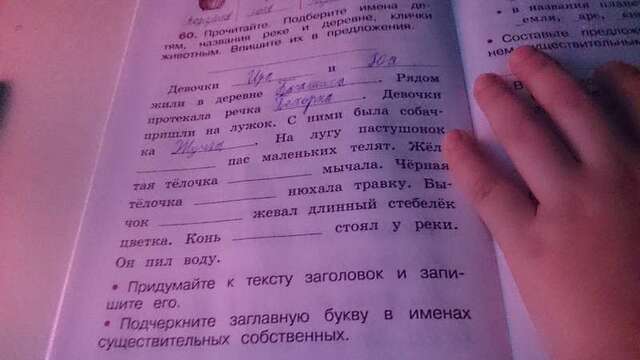 60. Прочитайте. Подберите имена де-
тям, названия реке и деревне, клички
животным. Впишите их в предложения.
Девочки Ира и Юа
жили в деревне . Рядом
протекала речка Белорка. Девочки
пришли на лужок. С ними была собач-
ка Жучка. На лугу пастушонок
пас маленьких телят. Жёл
тая тёлочка мычала. Чёрная
тёлочка нюхала травку. Бы-
чок жевал длинный стебелёк
цветка. Конь стоял у реки.
Он пил воду.
• Придумайте к тексту заголовок и запи-
шите его.
• Подчеркните заглавную букву в именах
существительных собственных.
• в названи
емля, аре,
• Составьте предлож
нем существительны
В